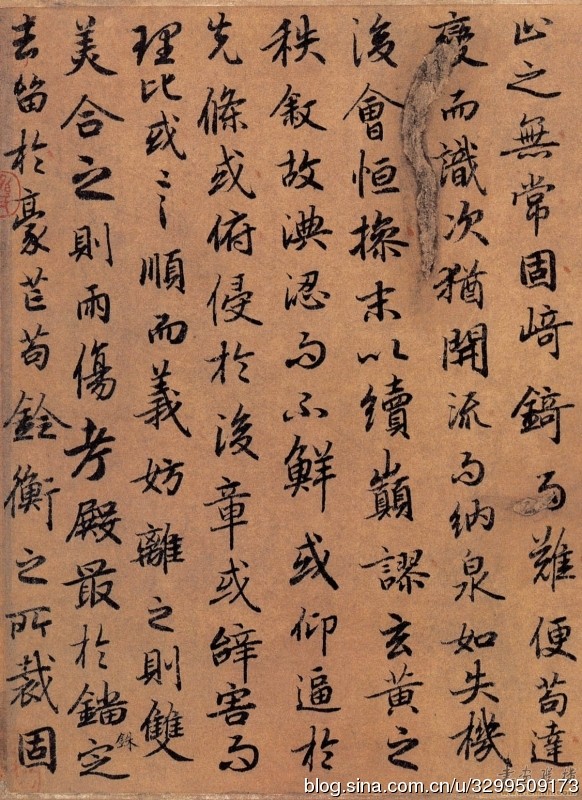 止之無常固崎錡而難便苟達
變而識次猶開流而納泉如失機
後會恒操末以續巔謬玄黃之
秩敘故淟涊而不鮮或仰逼於
先條或俯侵於後章或辭害而
理比或言順而義妨離之則雙
美合之則兩傷考殿最於錙銖定
去留於豪芒苟銓衡之所裁固
blog.sina.com.cn/u/3299509173